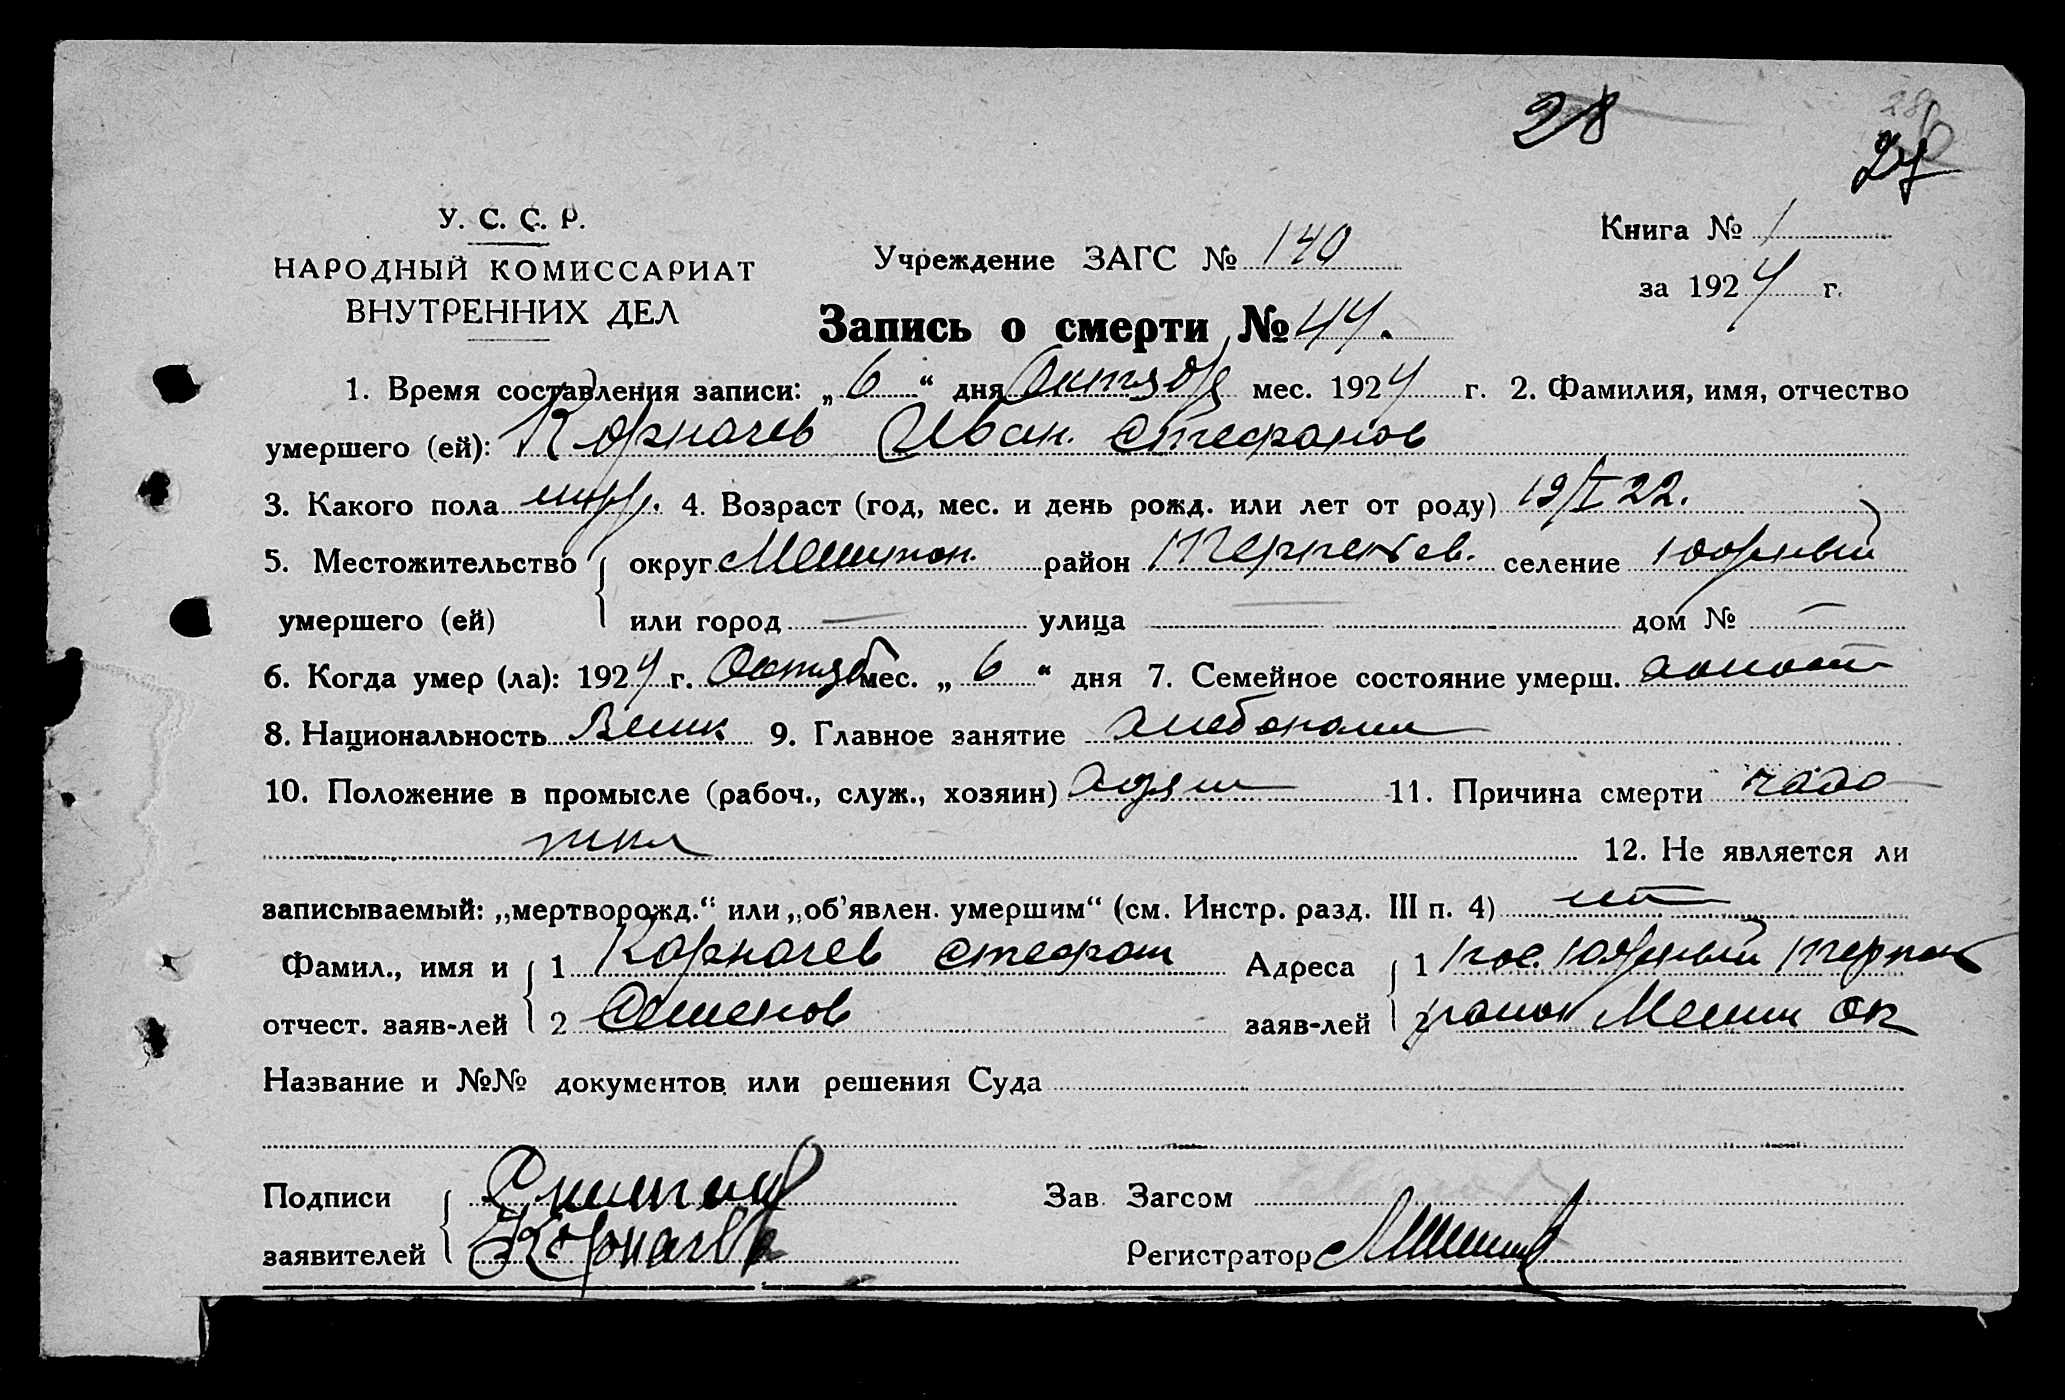 28
27
У. С. С. Р.
НАРОДНЫЙ КОМИССАРИАТ
ВНУТРЕННИХ ДЕЛ
Учреждение ЗАГС № 140
Книга № 1
за 1924 г.
Запись о смерти № 44.
1. Время составления записи: „6“ дня Октября мес. 1924 г. 2. Фамилия, имя, отчество
умершего (ей): Корначев Иван. Стефанов
3. Какого пола муж. 4. Возраст (год, мес. и день рожд. или лет от роду) 19/I 22.
5. Местожительство округ Мелитоп. район Терпенев. селение
умершего (ей) или город — улица — дом № —
6. Когда умер (ла): 1924 г. Октяб мес. „6“ дня 7. Семейное состояние умерш. холост
8. Национальность Велик 9. Главное занятие хлебопаш
10. Положение в промысле (рабоч., служ., хозяин) 11. Причина смерти
12. Не является ли
записываемый: „мертворожд.“ или „об'явлен. умершим“ (см. Инстр. разд. III п. 4) нет
Фамил., имя и 1 Корначев Стефан Адреса 1 пос. Терпен
отчест. заяв-лей 2 Семенов заяв-лей 2 район Мелит ок
Название и №№ документов или решения Суда
Подписи Зав. Загсом
заявителей Корначев Регистратор